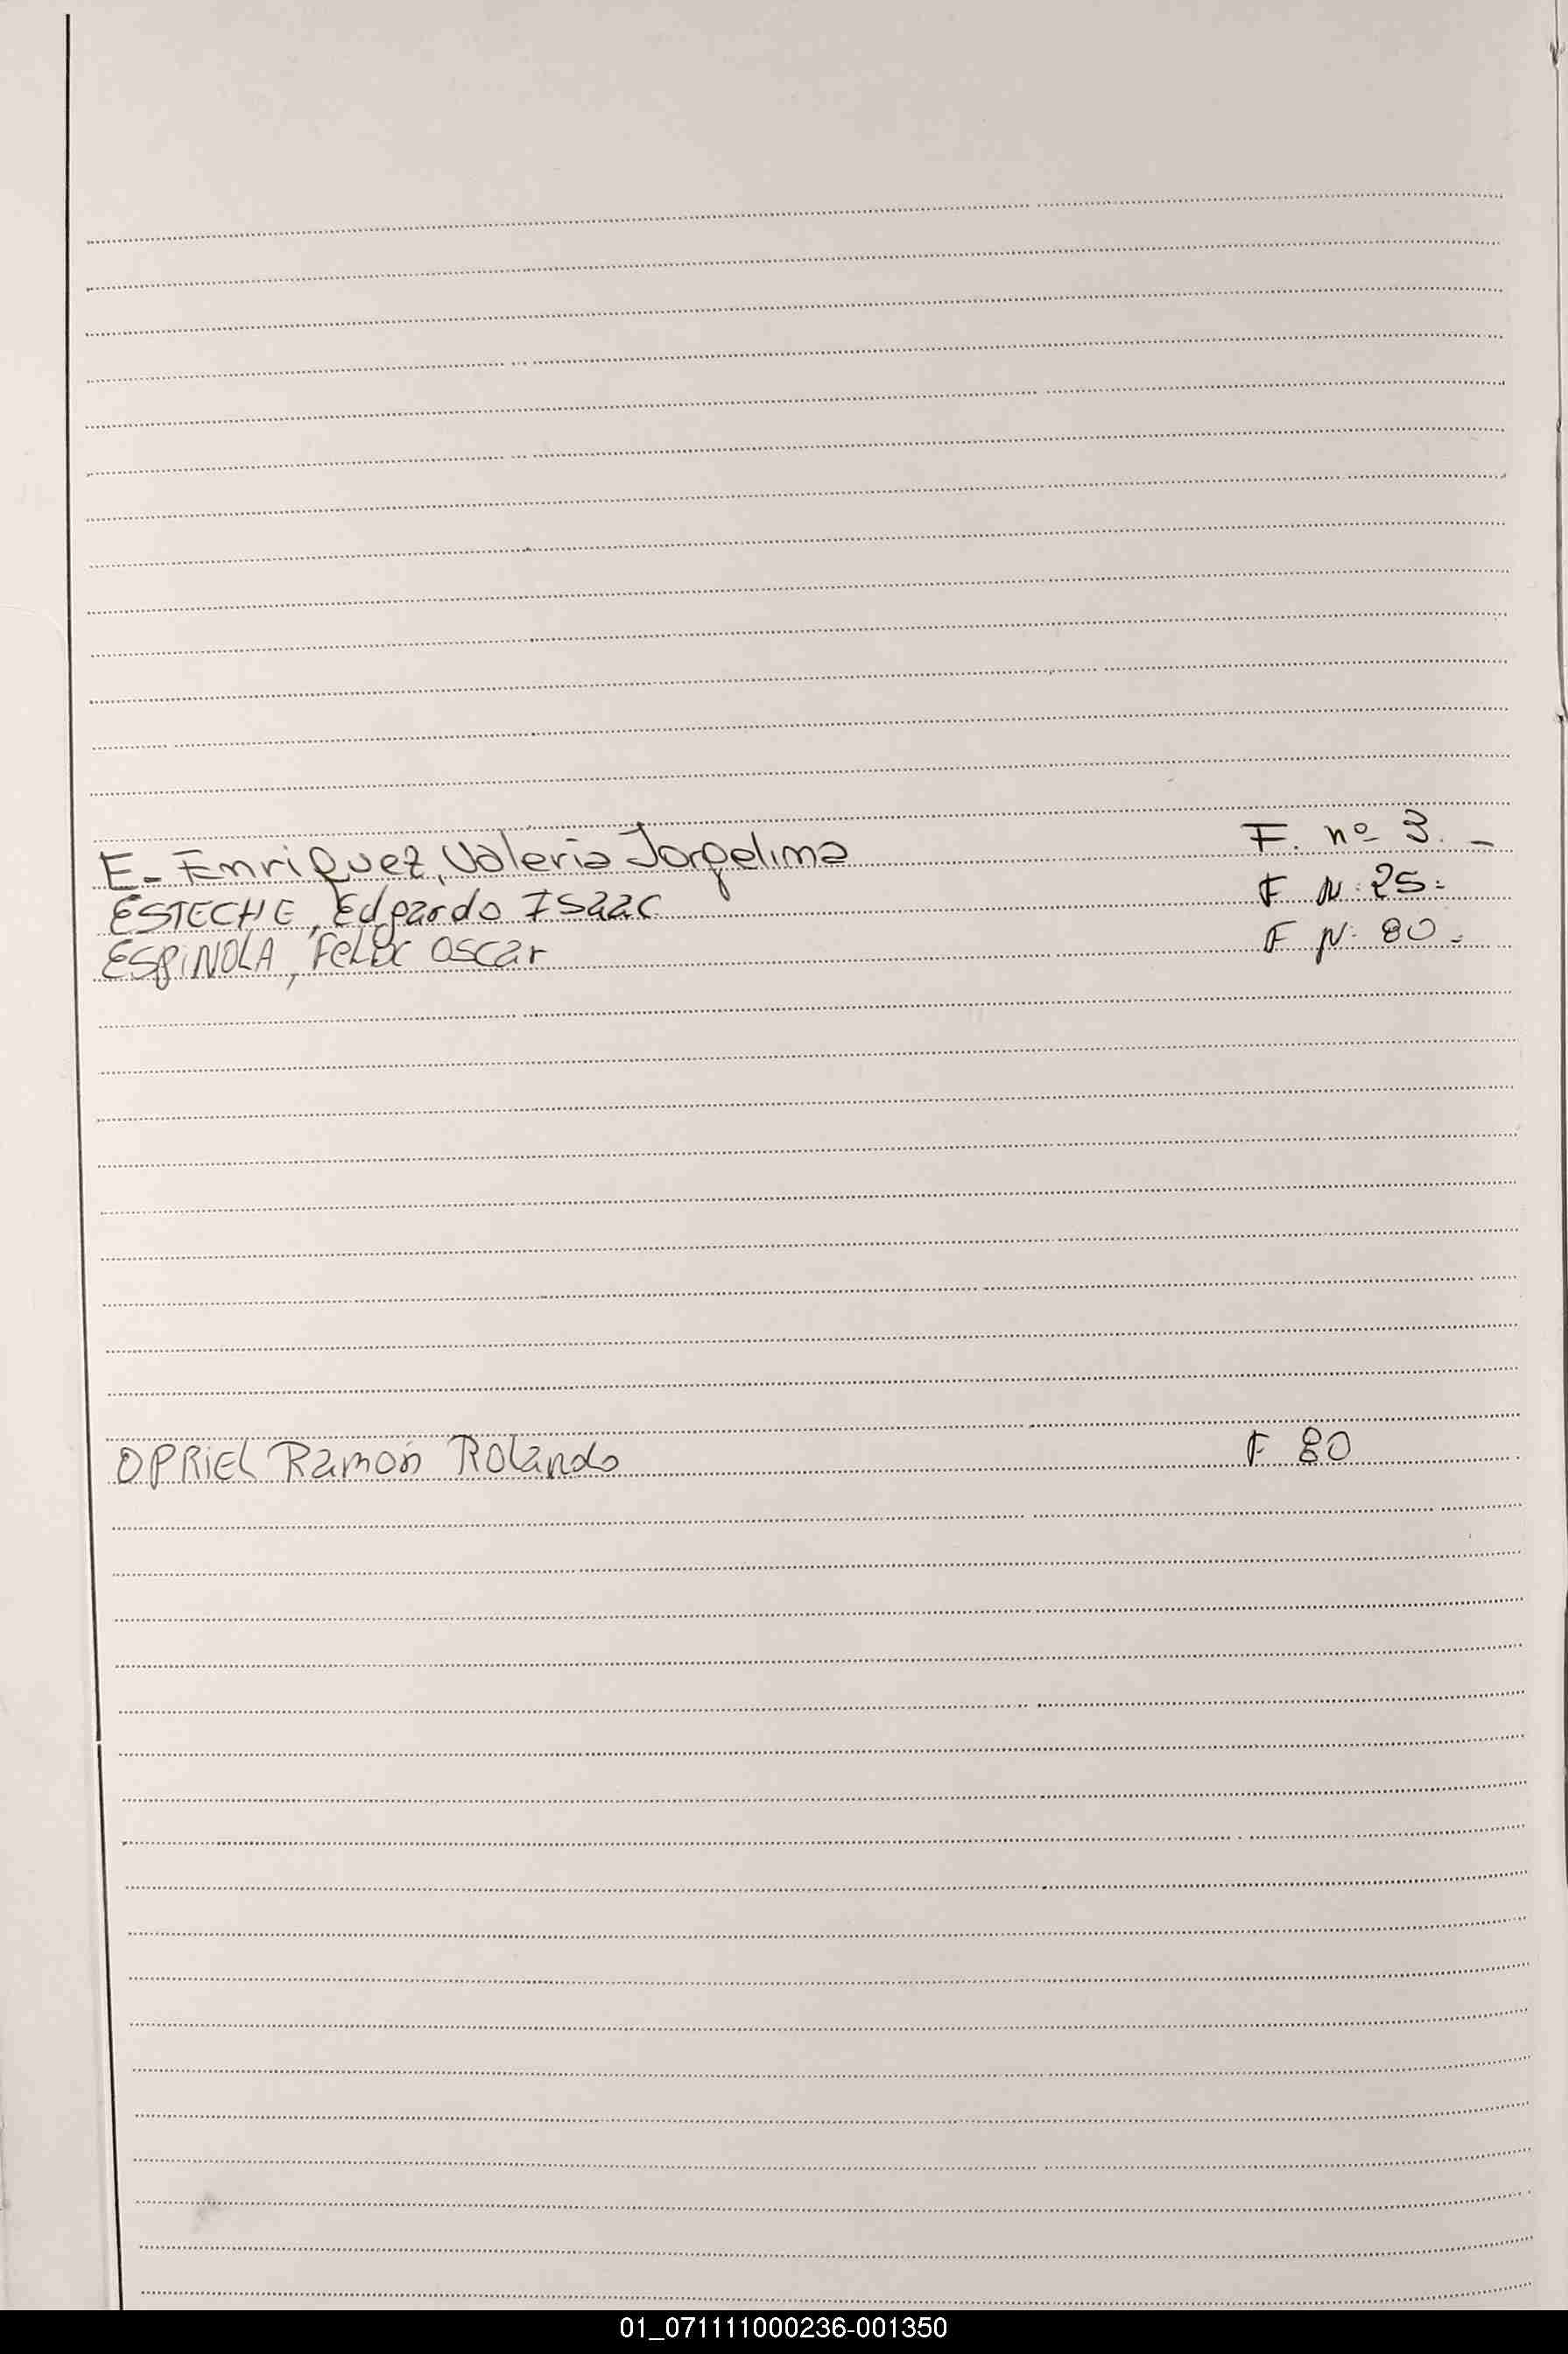 E- Enriquez, Valeria Jorgelina F. nº 3. -
ESTECHE, Edgardo ISaac F N: 25=
ESPiNOLA, FeLix Oscar F N: 80 =
OPRiEL Ramón Rolando F 80
01_071111000236-001350